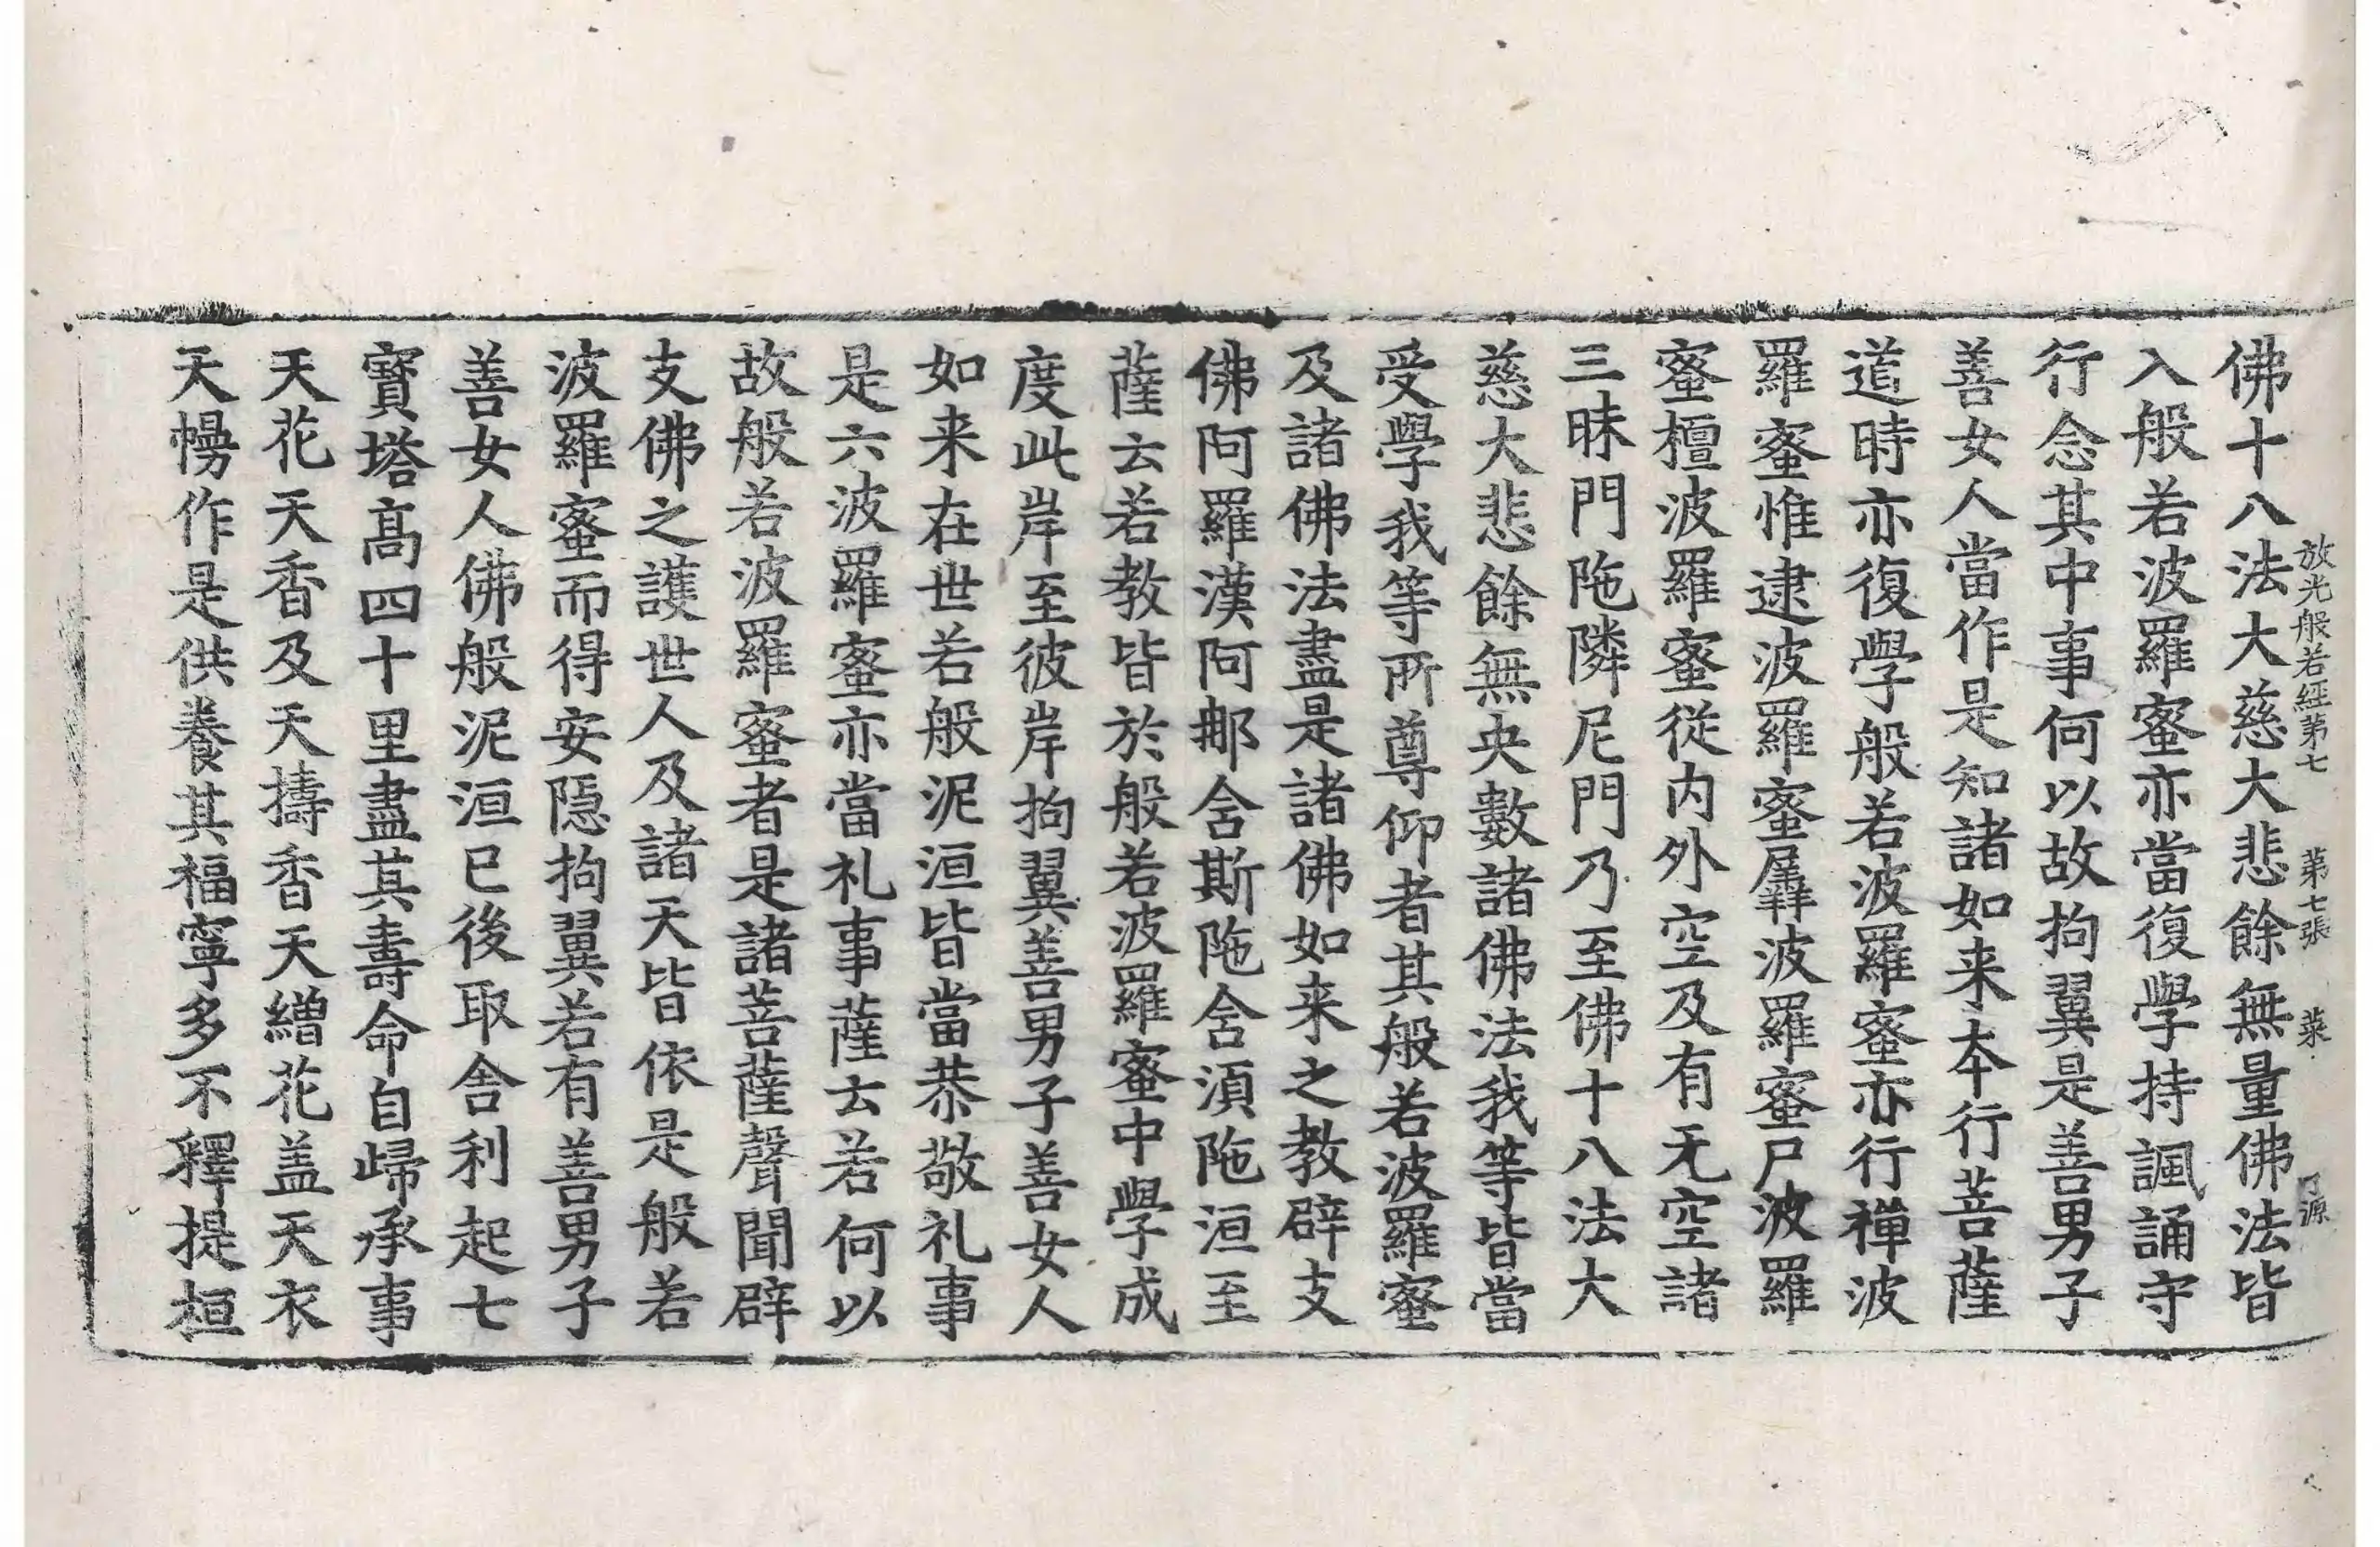 放光般若經第七 第七張 菜 了源
佛十八法大慈大悲餘無量佛法皆
入般若波羅蜜亦當復學持諷誦守
行念其中事何以故拘翼是善男子
善女人當作是知諸如来本行菩薩
道時亦復學般若波羅蜜亦行禪波
羅蜜惟逮波羅蜜羼波羅蜜尸波羅
蜜檀波羅蜜從内外空及有无空諸
三昧門陁隣尼門乃至佛十八法大
慈大悲餘無央數諸佛法我等皆當
受學我等所尊仰者其般若波羅蜜
及諸佛法盡是諸佛如来之教辟支
佛阿羅漢阿那舍斯陁含湏陁洹至
薩云若教皆於般若波羅蜜中學成
度此岸至彼岸拘翼善男子善女人
如来在世若般泥洹皆當恭敬礼事
是六波羅蜜亦當礼事薩云若何以
故般若波羅蜜者是諸菩薩聲聞辟
支佛之護世人及諸天皆依是般若
波羅蜜而得安隠拘翼若有善男子
善女人佛般泥洹已後取舍利起七
寳塔髙四十里盡其壽命自歸承事
天花天香及天擣香天繒花盖天衣
天幡作是供養其福寧多不釋提桓